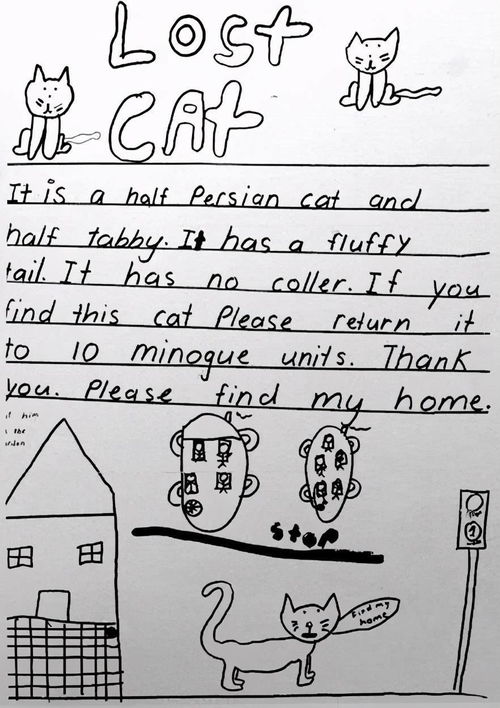 Lost
Cat
It is a half Persian cat and
half tabby. It has a fluffy
tail. It has no coller. If you
find this cat Please return it
to 10 minogue units. Thank
you. Please find my home.
him
the
stop
1
Find my
home